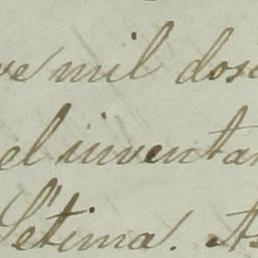 ve mil dosc
el inventar
Sétima. As